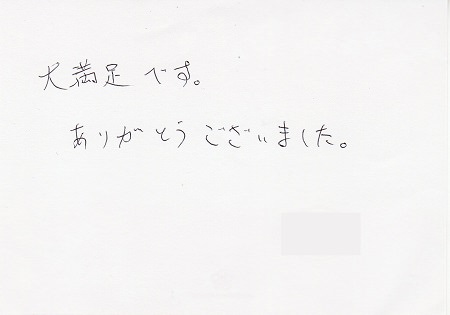 大満足です。
ありがとうございました。